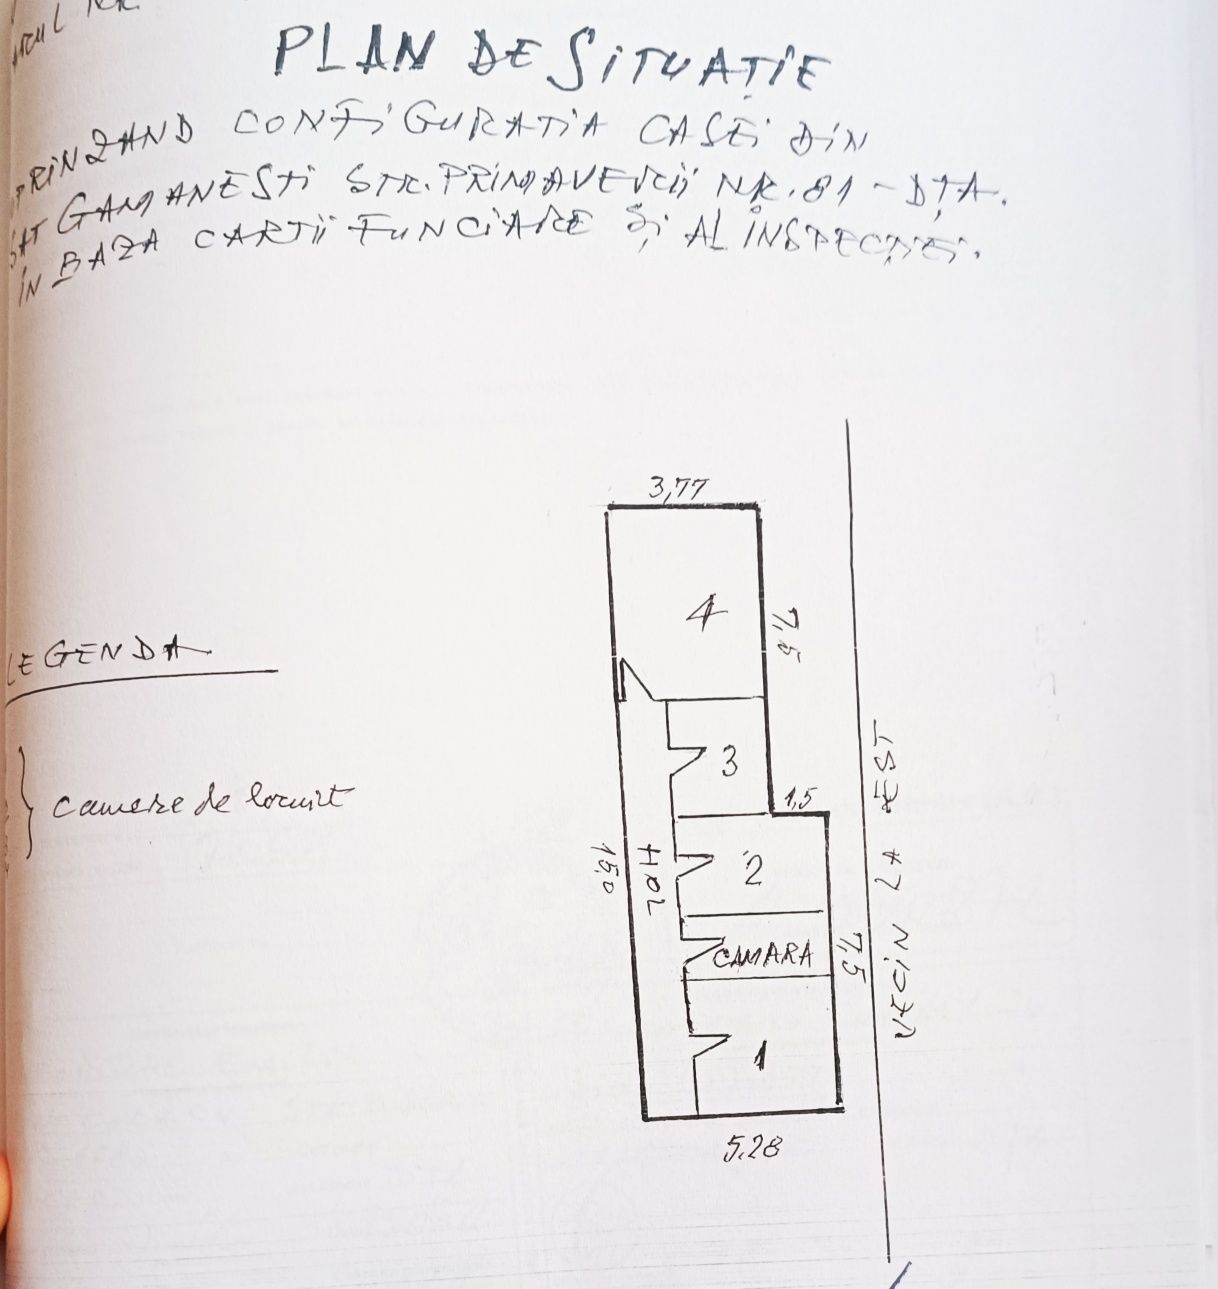 PLAN DE SITUAȚIE
PRINZAND CONFIGURATIA CASEI DIN
SAT GAMANESTI STR. PRIMAVERII NR. 81 - DȚA.
IN BAZA CARTII FUNCIARE ȘI AL INSPECȚIEI.
3,77
4
7,5
LEGENDA
3
camere de locuit
1,5
15,0
HOL
2
CAMARA
7,5
VECIN LA EST
1
5.28